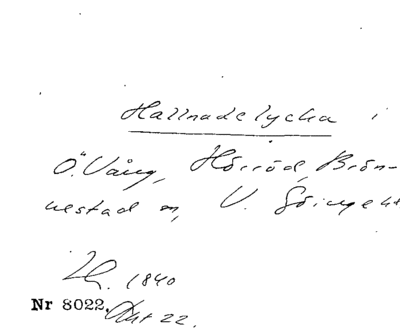 Hallnadelycka i
Ö. Vång, Hörröd, Brön-
nestad sn, V. Göinge hd
1840
Nr 8022. Akt 22.